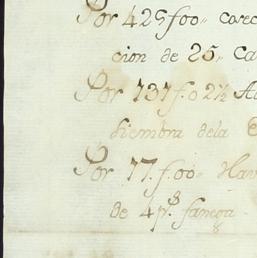 Por 425f00,, carec
cion de 25,, Ca
Por 737f.02½
siembra dela
Por 77.f.00,, Hav
de 4 p.s fanega